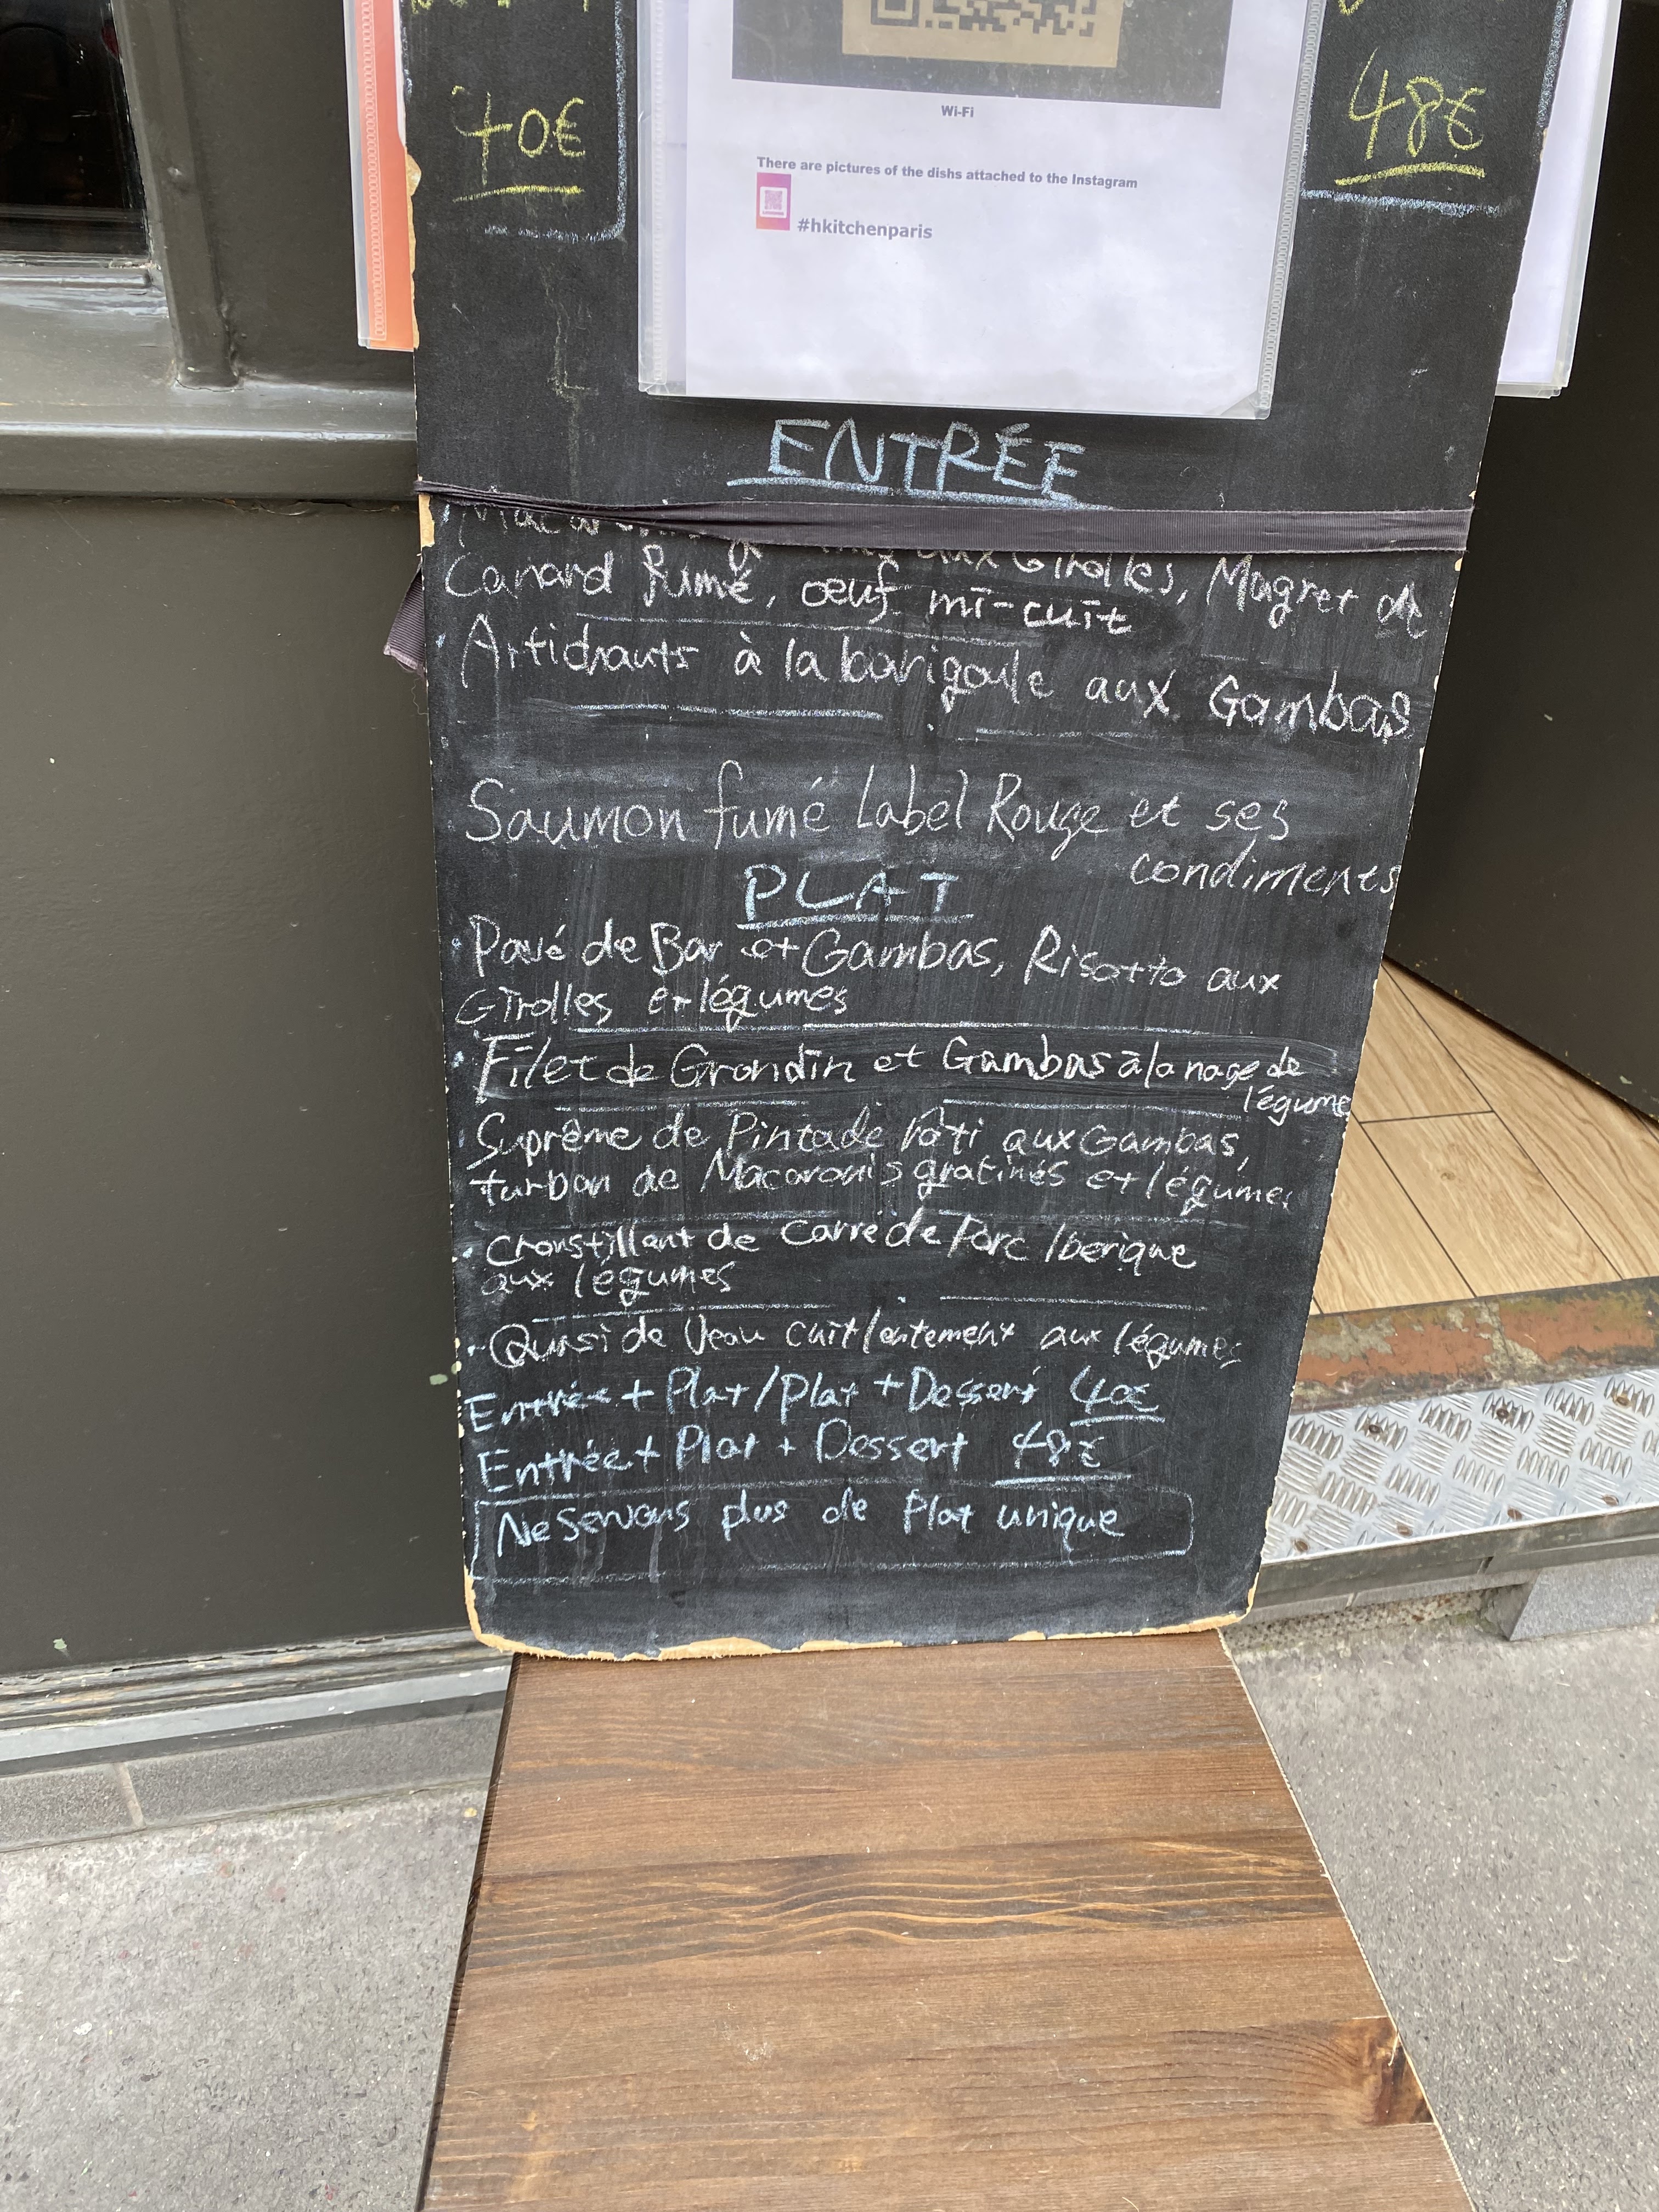 40€
48€
Wi-Fi
There are pictures of the dishs attached to the Instagram
#hkitchenparis
ENTRÉE
aux Girolles, Magret de
Canard fumé, œuf mi-cuit
Artichauts à la barigoule aux Gambas
Saumon fumé Label Rouge et ses
condiments
PLAT
Pavé de Bar et Gambas, Risotto aux
Girolles et légumes
Filet de Grondin et Gambas à la nage de
légume
Suprême de Pintade rôti aux Gambas,
turban de Macaronis gratinés et légumes
Croustillant de Carré de Porc Iberique
aux légumes
Quasi de Veau cuit lentement aux légumes
Entrée + Plat / Plat + Dessert 40€
Entrée + Plat + Dessert 48€
Ne servons plus de Plat unique